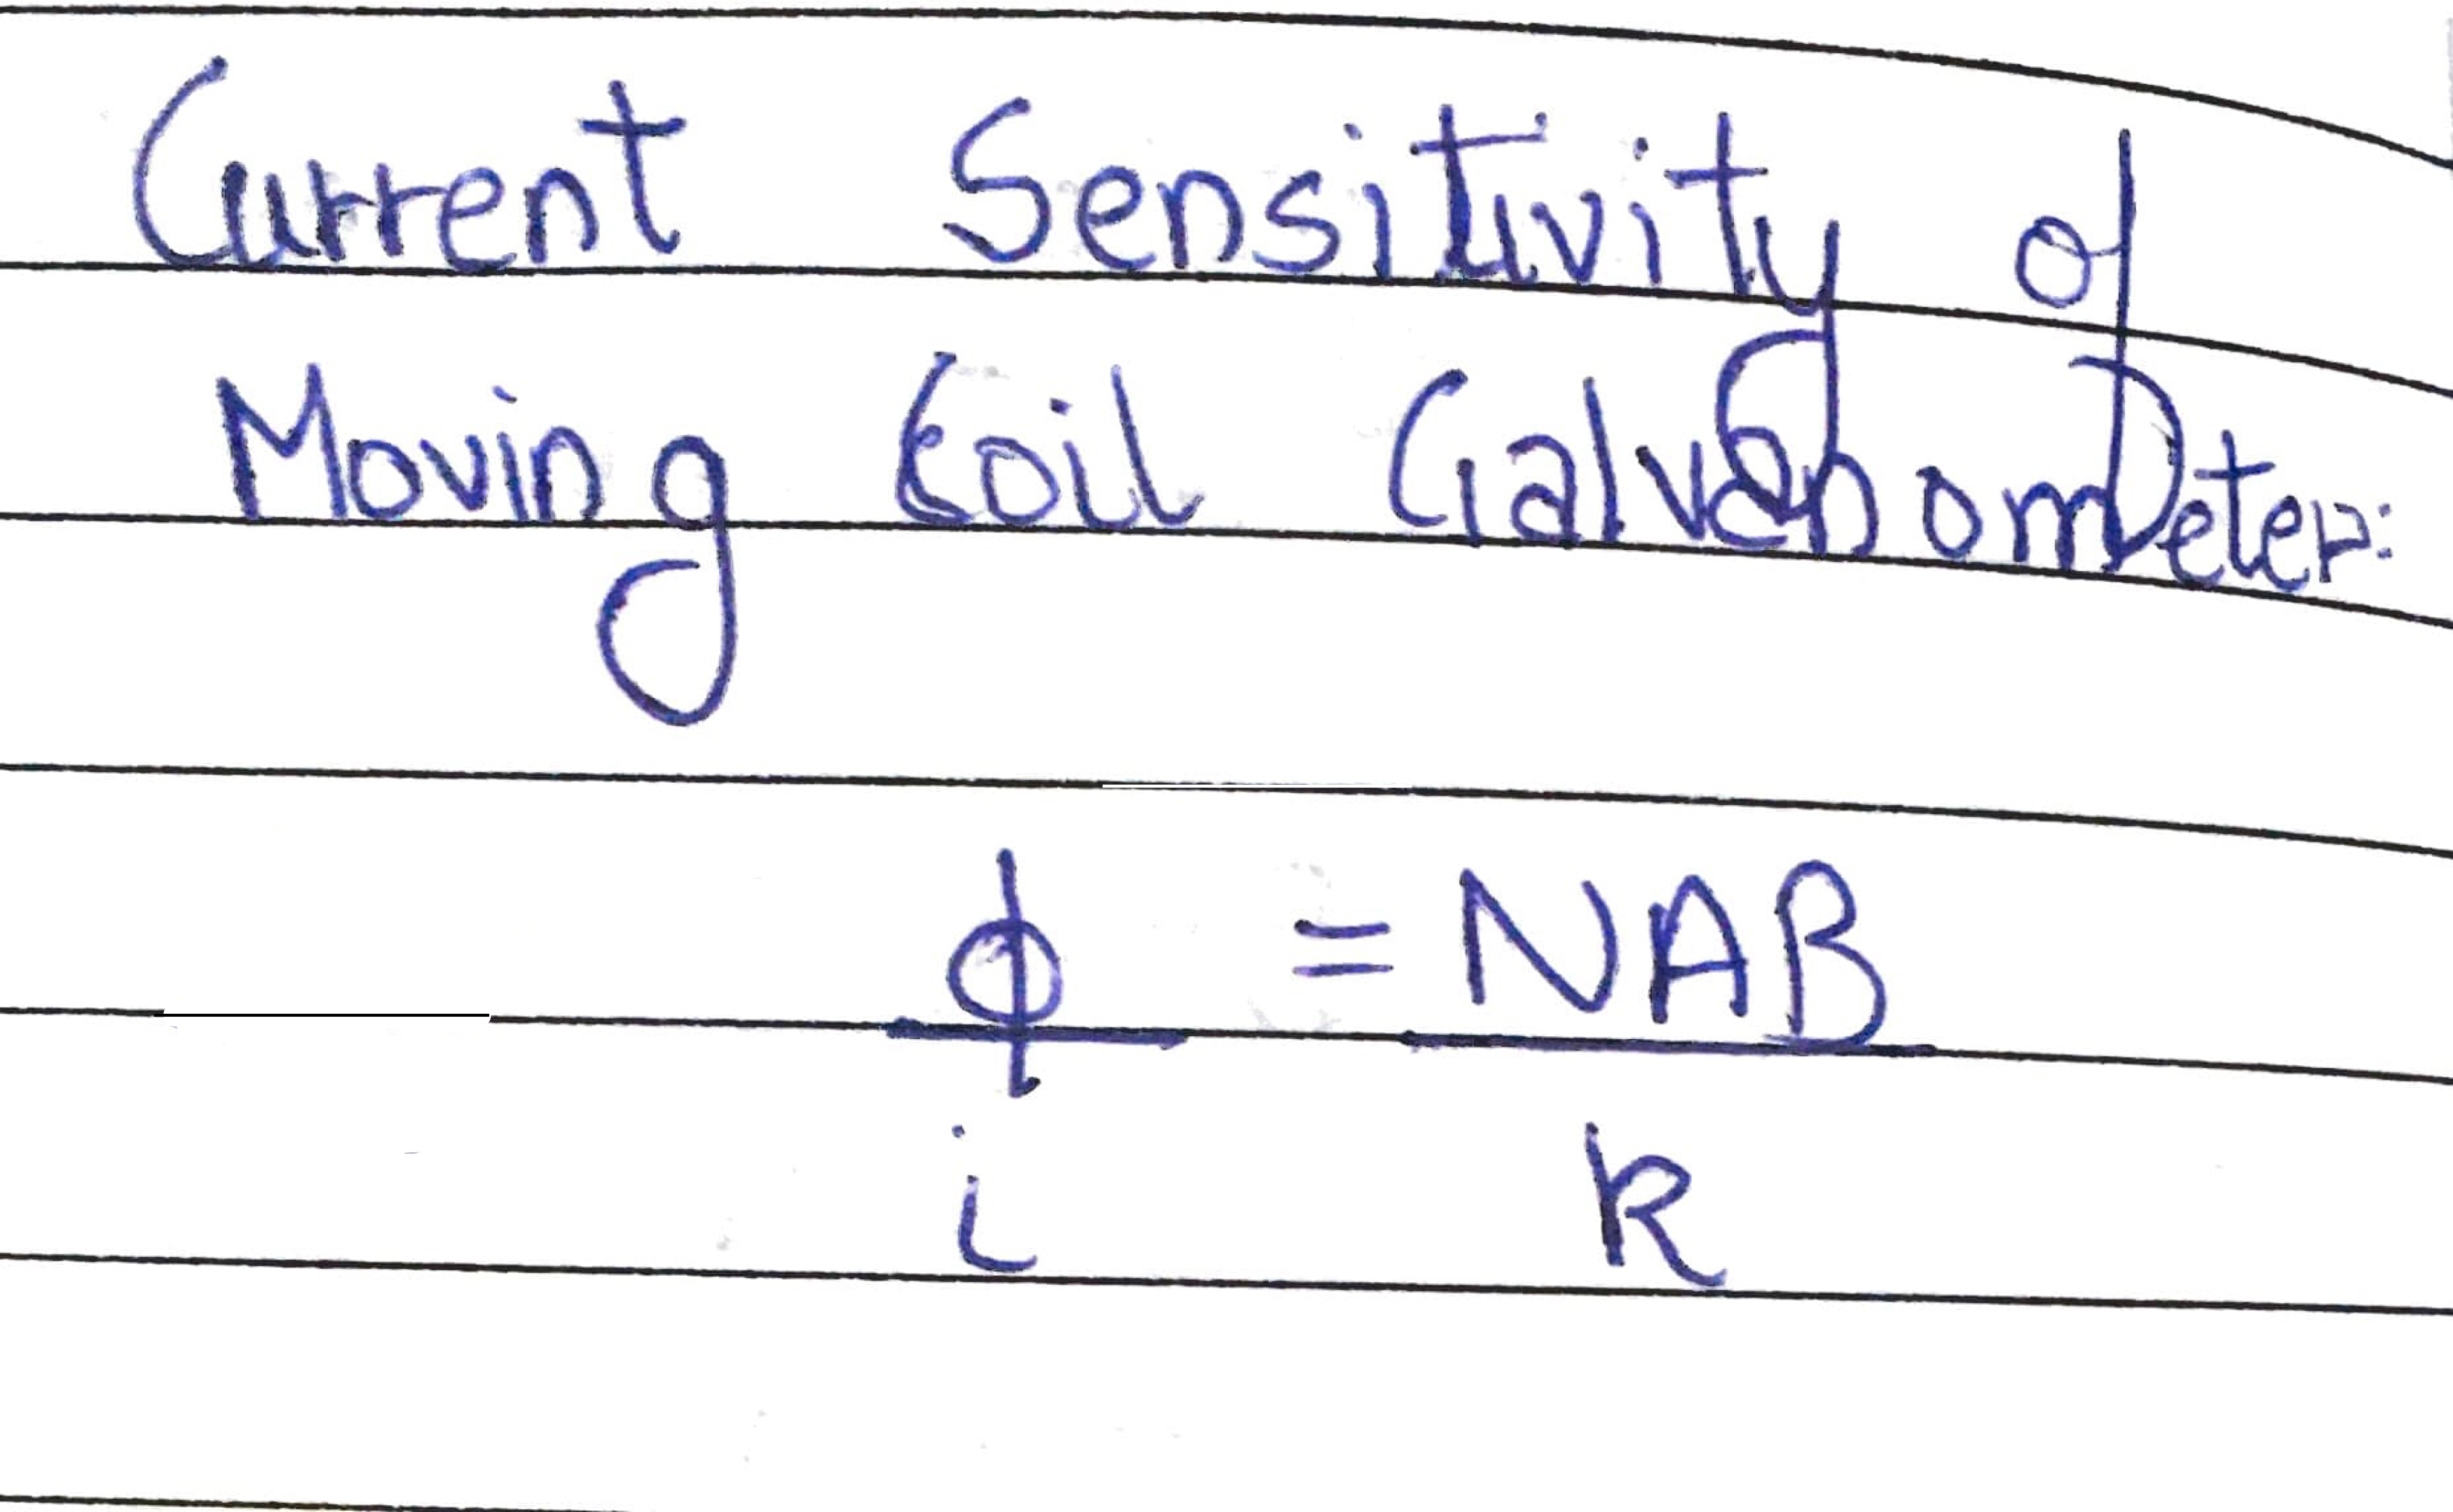 Current Sensitivity of
Moving Coil Galvanometer:
ϕ = NAB
i k